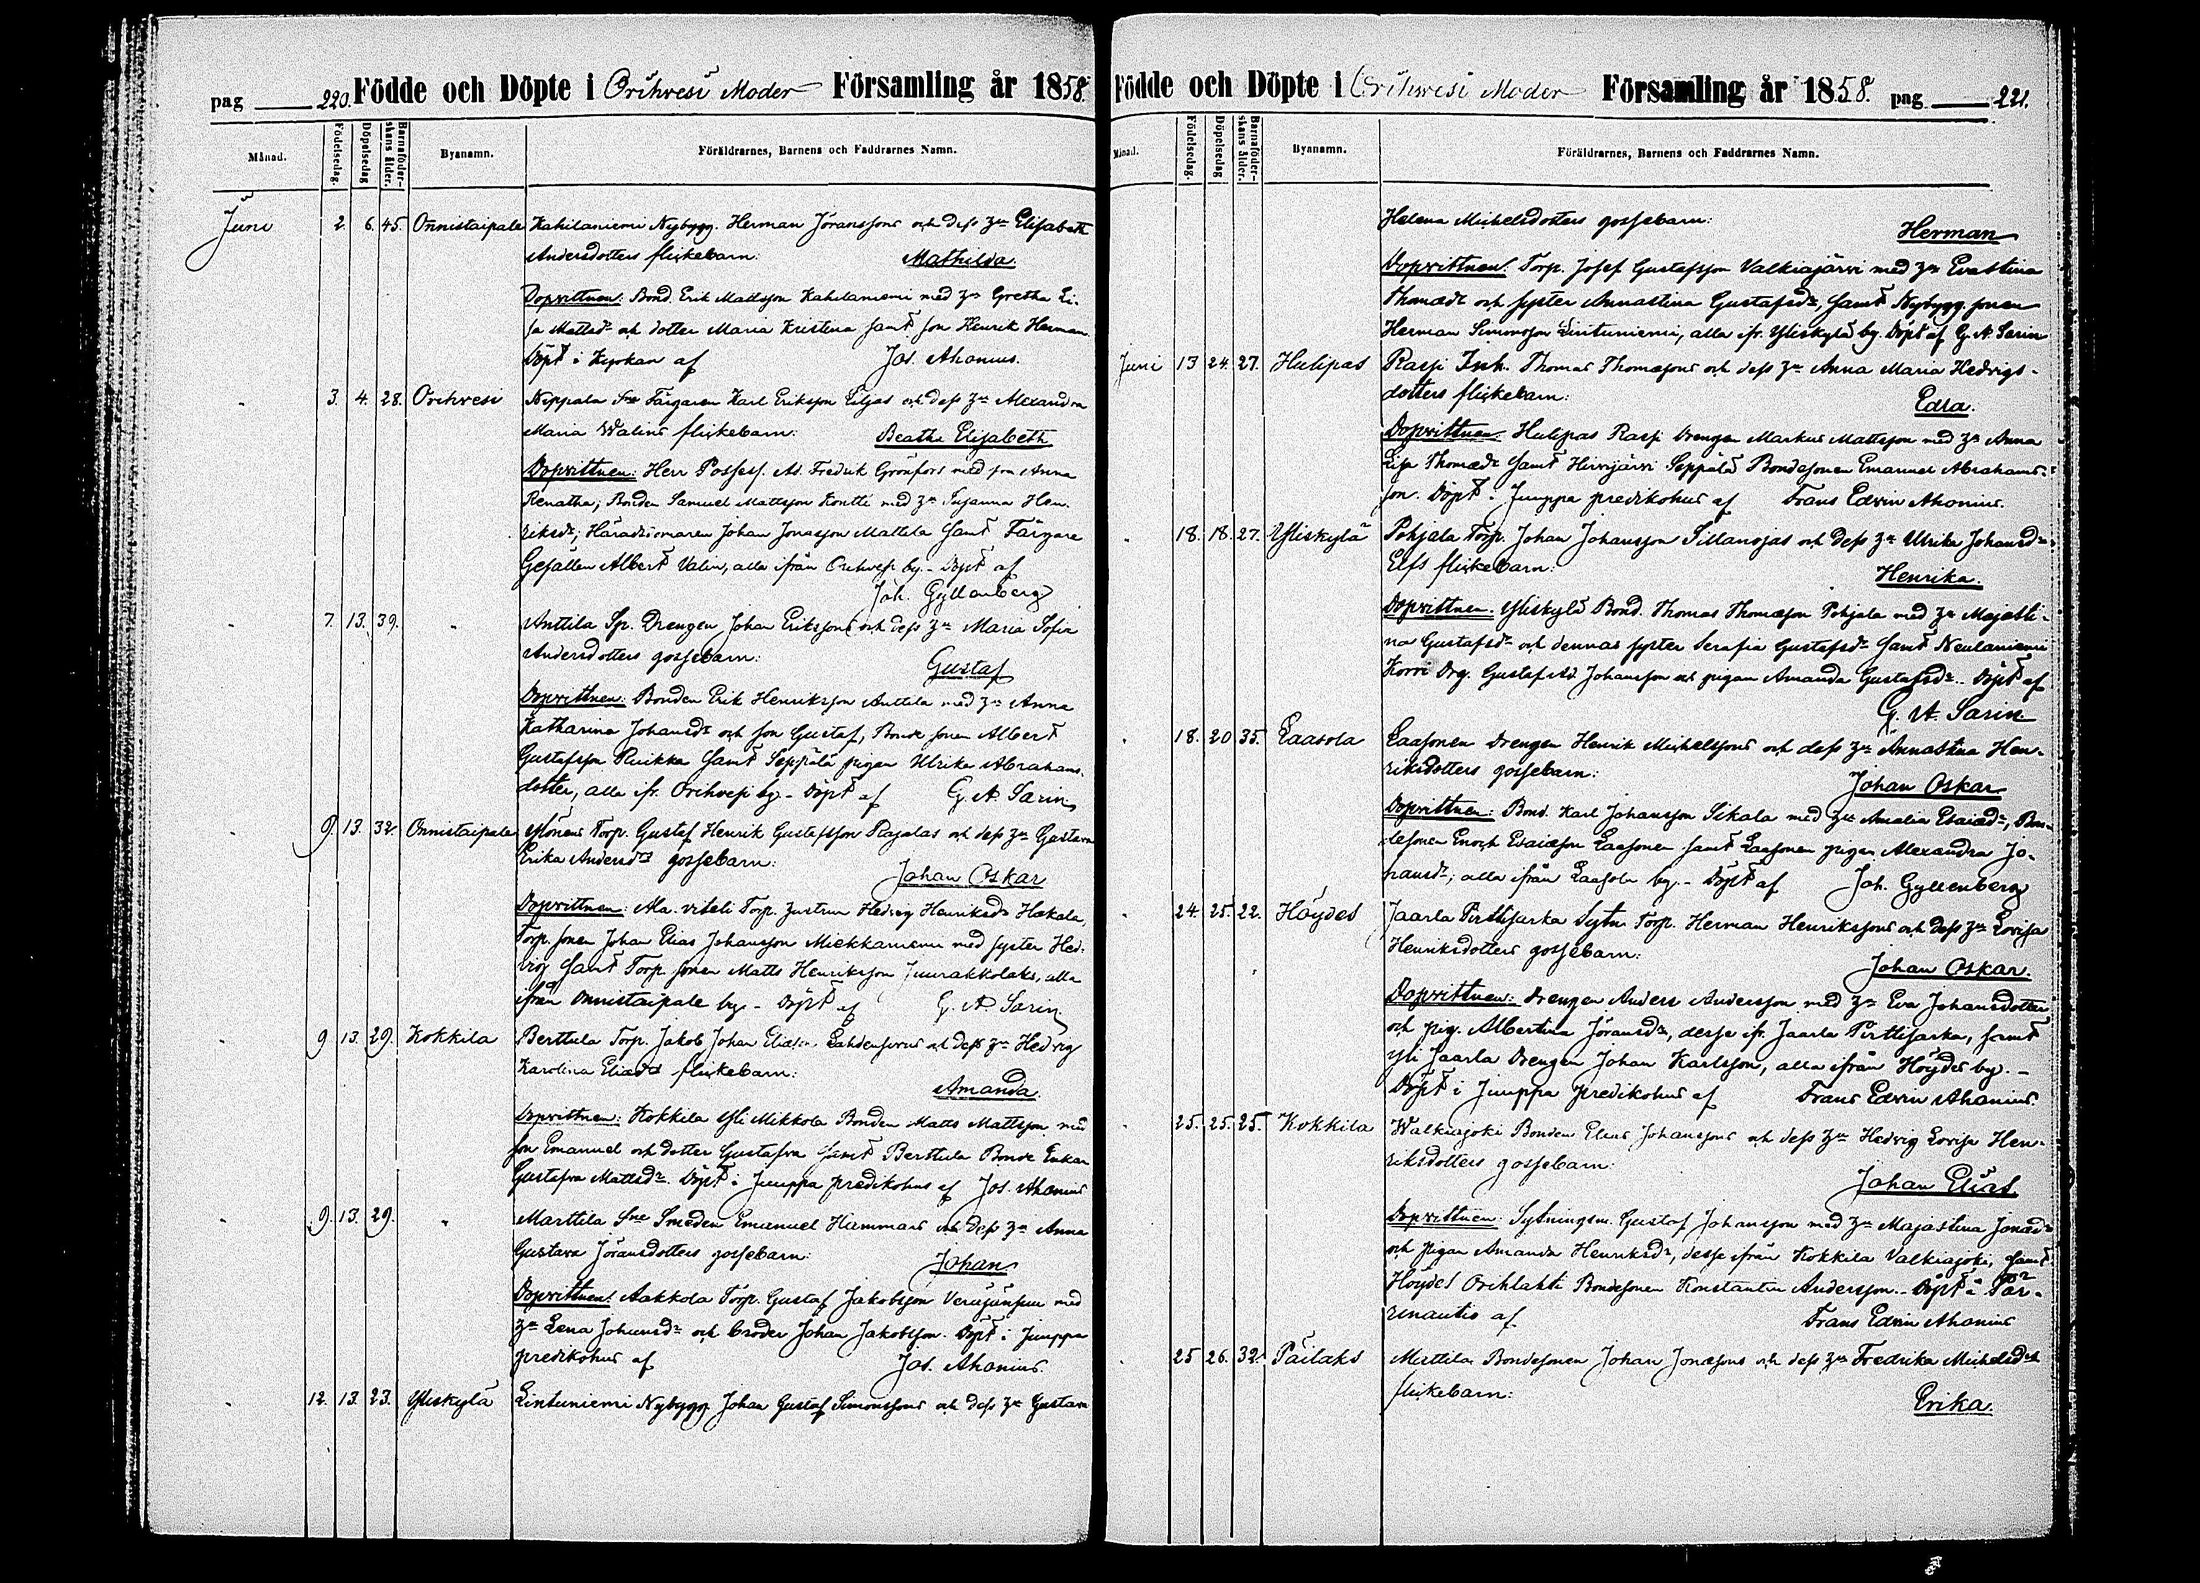 pag 220. Födde och Döpte i Orihvesi Moder Församling år 1858.
Månad. Födelsedag. Döpelsedag Barnaföderskans ålder. Byanamn. Föräldrarnes, Barnens och Faddrarnes Namn.
Juni 2. 6. 45. Onnistaipale Kahilaniemi Nybygg. Herman Jöranssons och dess hu Elisabeth
Andersdotters flickebarn: Mathilda
Dopvittnen: Bond. Erik Mattsson Kahilaniemi med hu Gretha Li-
sa Mattsdr och dotter Maria Kristina samt son Henrik Herman.
Döpt i Kyrkan af Jos. Ahonius.
3. 4. 28. Orihvesi Nippala Sne Färgaren Karl Eriksson Eljas och dess hu Alexandra
Maria Walins flickebarn: Beatha Elisabeth
Dopvittnen: Herr Possess. Ad. Fredrik Grönfors med fru Anna
Renatha; Bonden Samuel Mattsson Kontti med hu Susanna Hen-
riksdr; Häradsdomaren Johan Jonasson Mattila samt Färgare
Gesällen Albert Valin, alla ifrån Orihvesi by. - Döpt af
Joh. Gyllenberg
7. 13. 39. " Anttila Sp. Drengen Johan Erikssons och dess hu Maria Sofia
Andersdotters gossebarn: Gustaf
Dopvittnen: Bonden Erik Henriksson Anttila med hu Anna
Katharina Johansdr och son Gustaf, Bonde sonen Albert
Gustafsson Ruikka samt Seppälä pigan Ulrika Abrahams-
dotter, alla ifr. Orihvesi by. - Döpt af G. A. Sarin
9. 13. 32. Onnistaipale Mönens Torp. Gustaf Henrik Gustafsson Rajalas och dess hu Gustava
Erika Andersdrs gossebarn: Johan Oskar
Dopvittnen: Ala-viteli Torp. hustrun Hedvig Henriksdr Hakala,
Torp. sonen Johan Elias Johansson Miekkaniemi med syster Hed-
vig samt Torp. sonen Matts Henriksson Juurakkolaks, alla
ifrån Onnistaipale by. - Döpt af G. A. Sarin
9 13. 29. Kokkila Berttula Torp. Jakob Johan Eliass. Lahdensivus och dess hu Hedvig
Karolina Eliasdrs flickebarn: Amanda.
Dopvittnen: Kokkila Yli Mikkola Bonden Matts Mattsson med
son Emanuel och dotter Gustafva samt Berttula Bonde Enkan
Gustafva Mattsdr. Döpt i Juuppa predikohus af Jos. Ahonius
9. 13. 29. " Marttila Sne Smeden Emanuel Hammars och dess hu Anna
Gustava Jöransdotters gossebarn: Johan
Dopvittnen: Aakkola Torp. Gustaf Jakobsson Verujunsuu med
hu Lena Johansdr och broder Johan Jakobsson. Döpt i Juuppa
predikohus af Jos. Ahonius
12. 13. 23. Yliskylä Lintuniemi Nybygg. Johan Gustaf Simonssons och dess hu Gustava
Födde och Döpte i Orihvesi Moder Församling år 1858. pag 221.
Månad. Födelsedag. Döpelsedag Barnaföderskans ålder. Byanamn. Föräldrarnes, Barnens och Faddrarnes Namn.
Helena Michelsdotters gossebarn: Herman
Dopvittnen: Torp. Josef Gustafsson Valkiajärvi med hu Evastina
Thomædr och syster Annastina Gustafsdr, samt Nybygg. sonen
Herman Simonsson Lintuniemi, alla ifr. Yliskylä by. Döpt af G. A. Sarin
Juni 13 24. 27. Hulipas Rasji Inh. Thomas Thomæsons och dess hu Anna Maria Hedvigs-
dotters flickebarn: Edla.
Dopvittnen: Hulipas Rasji Drengen Markus Mattsson med hu Anna
Lisa Thomædr samt Hirvijärvi Seppälä Bondesonen Emanuel Abrahams-
son. Döpt i Juuppa predikohus af Frans Edvin Ahonius.
18. 18. 27. Yliskylä Pohjala Torp. Johan Johansson Sillanojas och dess hu Ulrika Johansdr
Elfs flickebarn: Henrika.
Dopvittnen: Yliskylä Bond. Thomas Thomæson Pohjala med hu Majasti-
na Gustafsdr och dennas syster Serafia Gustafsdr samt Neulaniemi
Korri Drg. Gustaf Ad. Johansson och pigan Amanda Gustafsdr. - Döpt af
G. A. Sarin
18. 20 35. Laasola Laasonen Drengen Henrik Michelssons och dess hu Annastina Hen-
riksdotters gossebarn: Johan Oskar
Dopvittnen: Bond. Karl Johansson Sikala med hu Amalia Esaiædr, Bon-
desonen Enoch Esaiæson Laasonen samt Laasonen pigan Alexandra Jo-
hansdr; alla ifrån Laasola by. - Döpt af Joh. Gyllenberg
24. 25. 22. Höydes Jaarla Pirttisarka Sytn. Torp. Herman Henrikssons och dess hu Lovisa
Henriksdotters gossebarn: Johan Oskar.
Dopvittnen: Drengen Anders Andersson med hu Eva Johansdotter
och pig. Albertina Jöransdr, desse ifr. Jaarla Pirttisarka, samt
Yli Jaarla Drengen Johan Karlsson, alla ifrån Höydes by. -
Döpt i Juuppa predikohus af Frans Edvin Ahonius.
25. 25. 25. Kokkila Walkiajoki Bonden Elias Johanssons och dess hu Hedvig Lovisa Hen-
riksdotters gossebarn: Johan Elias
Dopvittnen: Sytningsm. Gustaf Johansson med hu Majastina Jonædr
och pigan Amanda Henriksdr, desse ifrån Kokkila Valkiajoki, samt
Höydes Orihlahti Bondesonen Konstantin Andersson. - Döpt i Pär-
unautio af Frans Edvin Ahonius
25 26. 32. Päilaks Mattila Bondesonen Johan Jonæsons och dess hu Fredrika Michelsdrs
flickebarn: Erika.